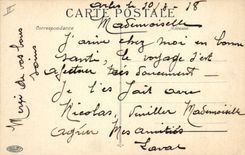 Arles le 20/3/18
CARTE POSTALE
Correspondance
Adresse
Mademoiselle
J'arrive chez moi en bonne
santé, le voyage s'est
très doucement
Je l'ai fait avec
Nicolas, Veuillez Mademoiselle
agréer Mes amitiés
Laval
Merci de vos bons
soins